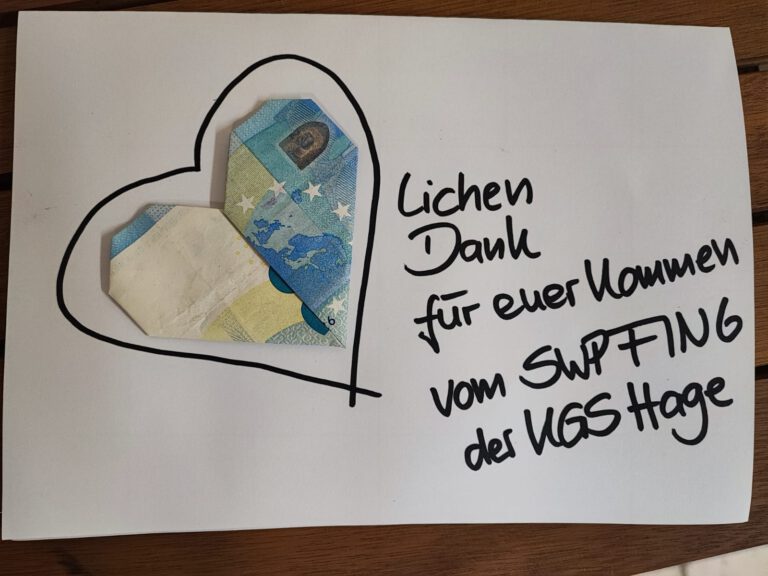 lichen
Dank
für euer Kommen
vom SWP FIN6
der KGS Hage